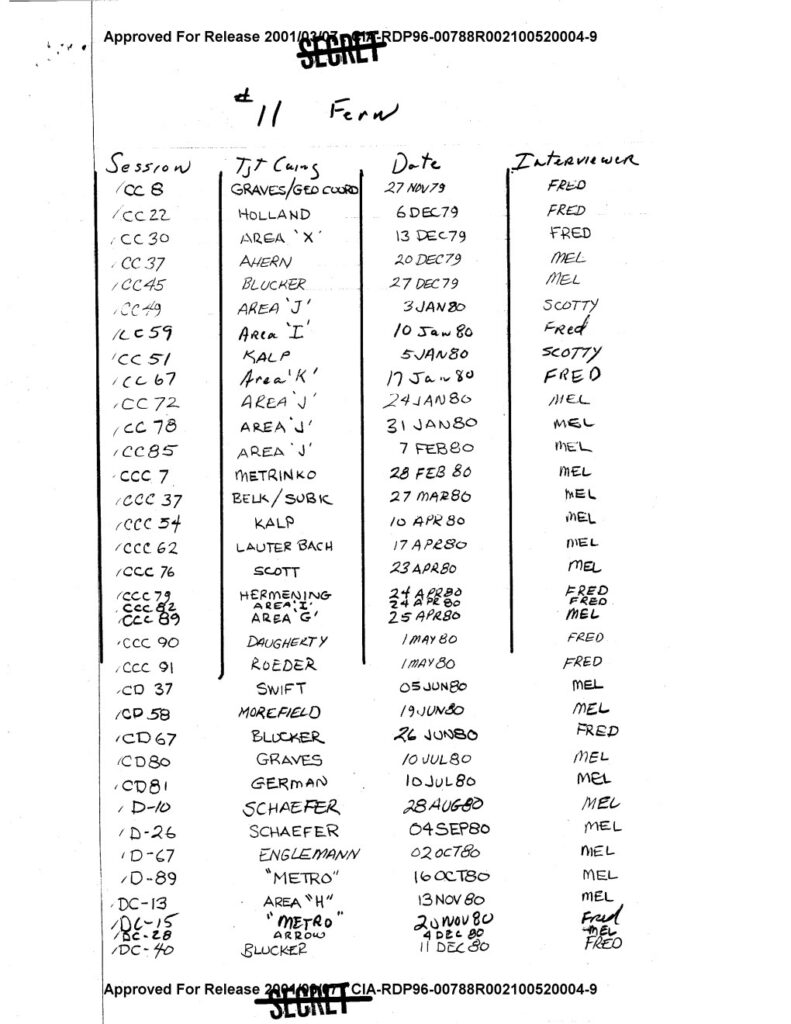 Approved For Release 2001/03/07 CIA-RDP96-00788R002100520004-9
SECRET
#11 Fern
Session Tgt Cuing Date Interviewer
CC 8 GRAVES/GEO COORD 27 NOV 79 FRED
CC 22 HOLLAND 6 DEC79 FRED
CC 30 AREA 'X' 13 DEC79 FRED
CC 37 AHERN 20 DEC79 MEL
CC45 BLUCKER 27 DEC79 MEL
CC49 AREA 'J' 3 JAN80 SCOTTY
CC 59 Area 'I' 10 Jan 80 Fred
CC 51 KALP 5 JAN80 SCOTTY
CC 67 Area 'K' 17 Jan 80 FRED
CC 72 AREA 'J' 24 JAN80 MEL
CC 78 AREA 'J' 31 JAN80 MEL
CC85 AREA 'J' 7 FEB80 MEL
CCC 7 METRINKO 28 FEB 80 MEL
CCC 37 BELK/SUBIC 27 MAR80 MEL
CCC 54 KALP 10 APR80 MEL
CCC 62 LAUTER BACH 17 APR80 MEL
CCC 76 SCOTT 23 APR80 MEL
CCC 79 HERMENING 24 APR80 FRED
CCC 82 AREA 'I' 24 APR 80 FRED
CCC 89 AREA 'G' 25 APR80 MEL
CCC 90 DAUGHERTY 1 MAY 80 FRED
CCC 91 ROEDER 1 MAY 80 FRED
CD 37 SWIFT 05 JUN80 MEL
CD 58 MOREFIELD 19 JUN80 MEL
CD67 BLUCKER 26 JUN80 FRED
CD80 GRAVES 10 JUL80 MEL
CD81 GERMAN 10 JUL80 MEL
D-10 SCHAEFER 28 AUG80 MEL
D-26 SCHAEFER 04 SEP80 MEL
D-67 ENGLEMANN 02 OCT80 MEL
D-89 "METRO" 16 OCT80 MEL
DC-13 AREA "H" 13 NOV 80 MEL
DC-15 "METRO" 20 NOV 80 Fred
DC-28 ARROW 4 DEC 80 MEL
DC-40 BLUCKER 11 DEC 80 FRED
Approved For Release 2001/03/07 CIA-RDP96-00788R002100520004-9
SECRET